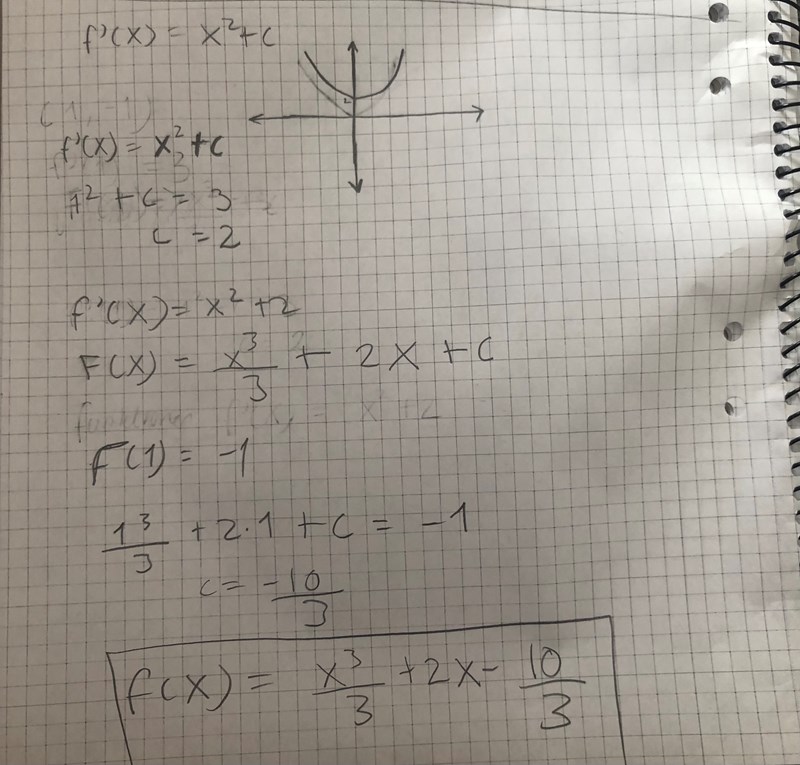 f'(x) = x²+c
(1,-1)
f'(x) = x²+c
1² + c = 3
c = 2
f'(x) = x² +2
F(x) = x³/3 + 2x + c
F(1) = -1
1³/3 + 2·1 + c = -1
c = -10/3
f(x) = x³/3 +2x - 10/3